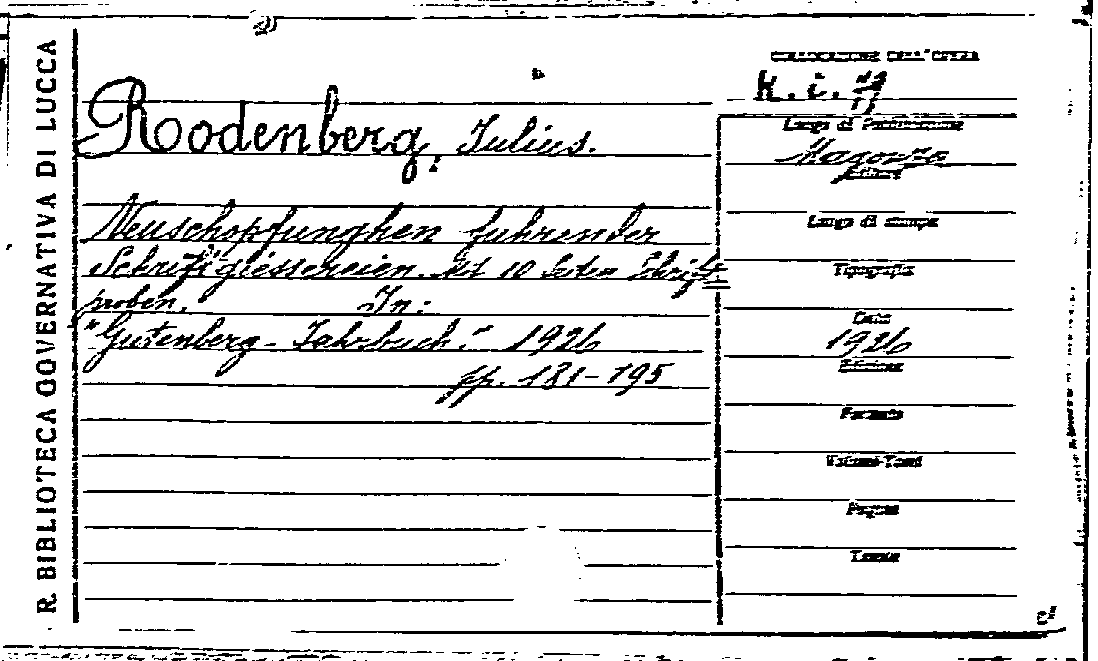 R. BIBLIOTECA GOVERNATIVA DI LUCCA
Rodenberg, Julius.
Neuschopfunghen fuhrender
Schriftgiessereien. Mit 10 Seiten Schrift=
proben. In:
"Gutenberg-Jahrbuch." 1926
pp. 181-195
COLLOCAZIONE DELL'OPERA
H. i.
Luogo di Pubblicazione
Magonza
Editore
Luogo di stampa
Tipografia
Data
1926
Edizione
Formato
Volumi-Tomi
Pagine